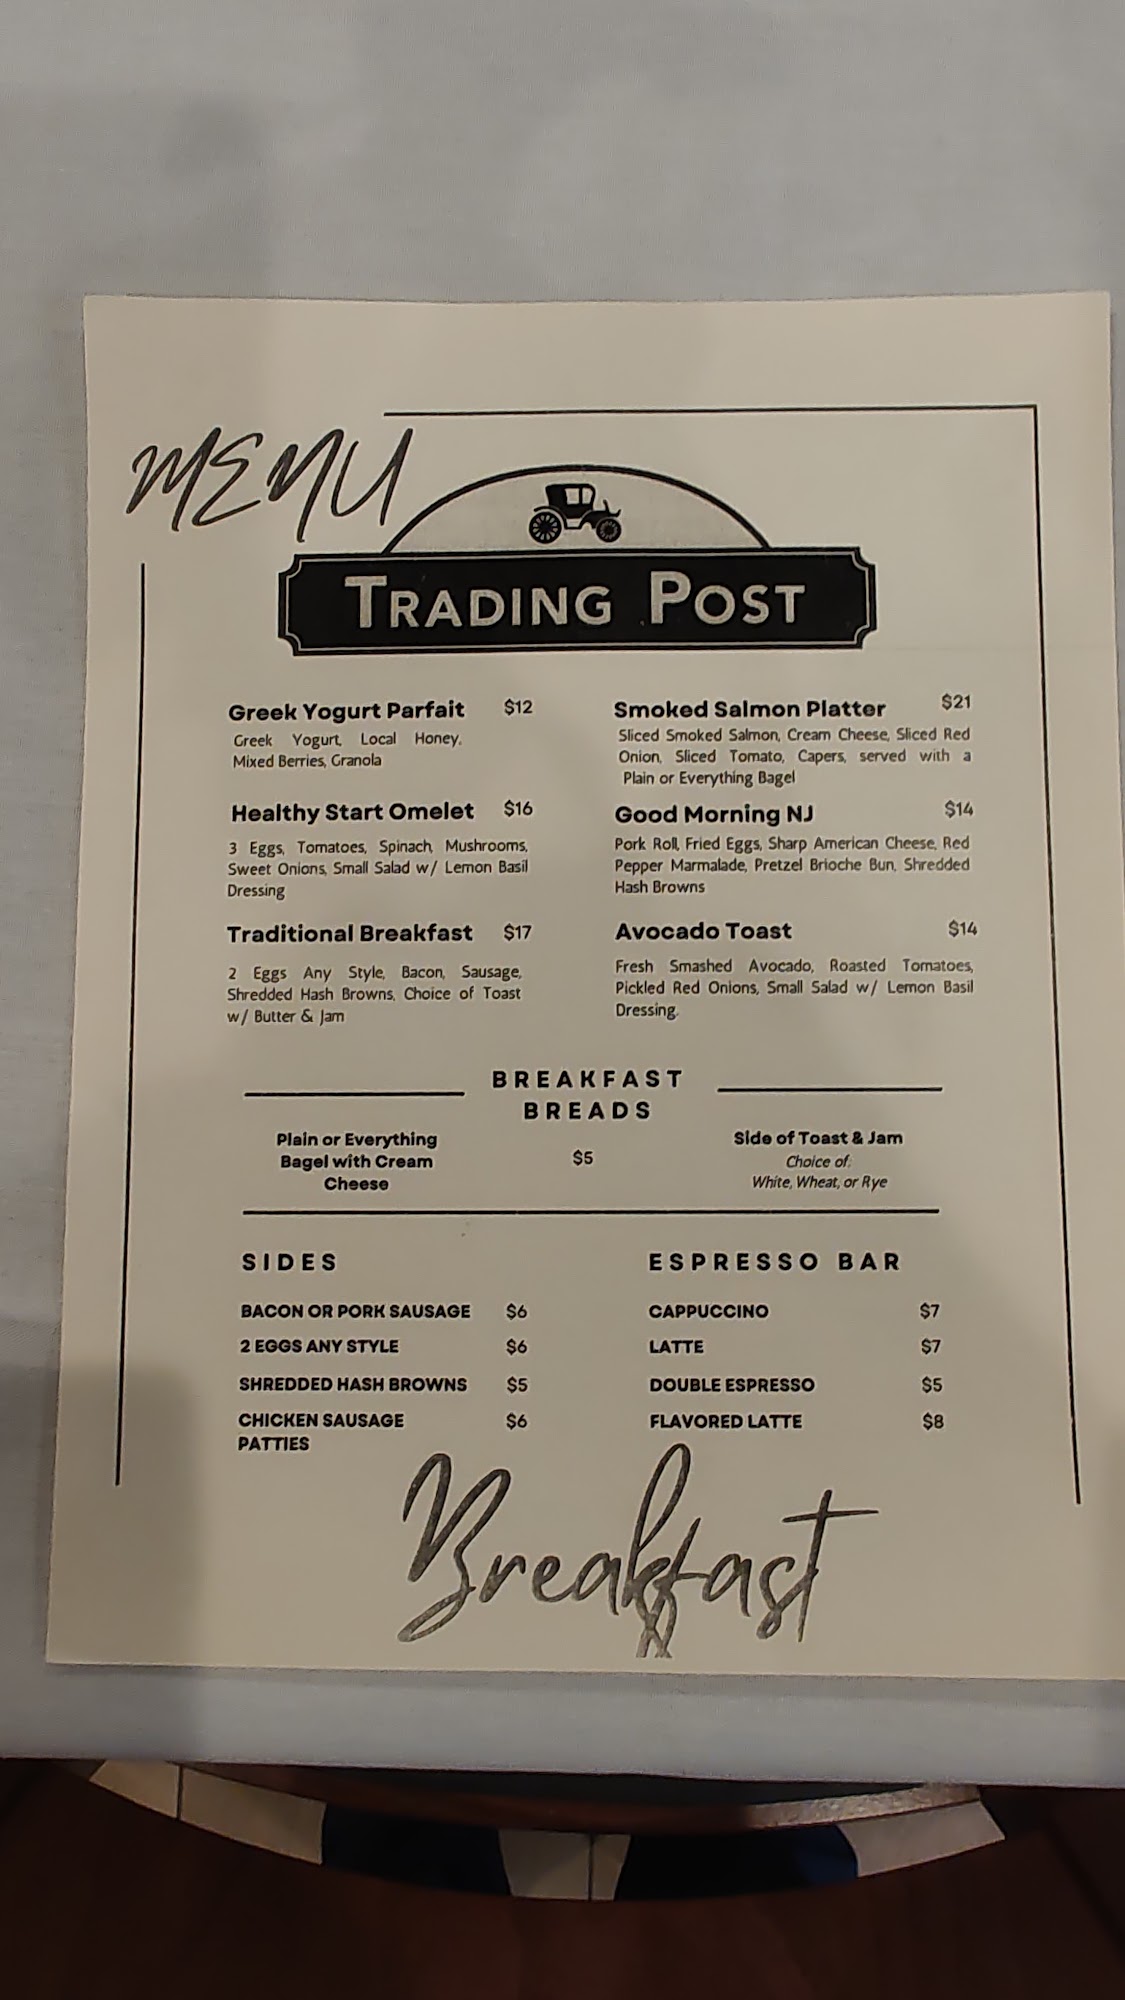 MENU
TRADING POST
Greek Yogurt Parfait $12
Greek Yogurt, Local Honey,
Mixed Berries, Granola
Healthy Start Omelet $16
3 Eggs, Tomatoes, Spinach, Mushrooms,
Sweet Onions, Small Salad w/ Lemon Basil
Dressing
Traditional Breakfast $17
2 Eggs Any Style, Bacon, Sausage,
Shredded Hash Browns, Choice of Toast
w/ Butter & Jam
Smoked Salmon Platter $21
Sliced Smoked Salmon, Cream Cheese, Sliced Red
Onion, Sliced Tomato, Capers, served with a
Plain or Everything Bagel
Good Morning NJ $14
Pork Roll, Fried Eggs, Sharp American Cheese, Red
Pepper Marmalade, Pretzel Brioche Bun, Shredded
Hash Browns
Avocado Toast $14
Fresh Smashed Avocado, Roasted Tomatoes,
Pickled Red Onions, Small Salad w/ Lemon Basil
Dressing.
BREAKFAST
BREADS
Plain or Everything
Bagel with Cream
Cheese
$5
Side of Toast & Jam
Choice of:
White, Wheat, or Rye
SIDES
BACON OR PORK SAUSAGE $6
2 EGGS ANY STYLE $6
SHREDDED HASH BROWNS $5
CHICKEN SAUSAGE $6
PATTIES
ESPRESSO BAR
CAPPUCCINO $7
LATTE $7
DOUBLE ESPRESSO $5
FLAVORED LATTE $8
Breakfast